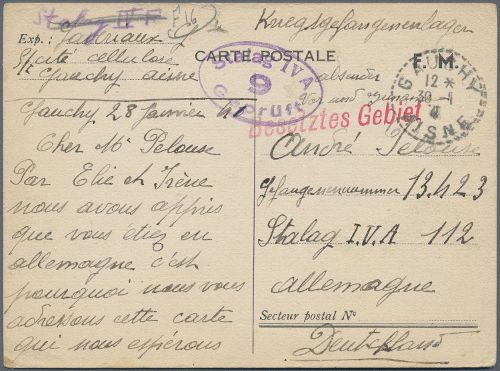 Stalag IV F
Exp.:
Sté cité cellulose
Gauchy aisne
Gauchy 28 Janvier 41
Cher Mr Pelouse
Par Elie et Irène
nous avons appris
que vous étiez en
allemagne c'est
pourquoi nous vous
adressons cette carte
qui nous espérons
Kriegsgefangenenlager
CARTE POSTALE
F.M.
Stalag IVA
9
Geprüft
absender
Vor und zuname
GAUCHY
12 *
30 - 1
41
AISNE
Besetztes Gebiet
André Pelouse
Gefangenennummer 13.423
Stalag I.V.A 112
allemagne
Secteur postal No
Deutschland